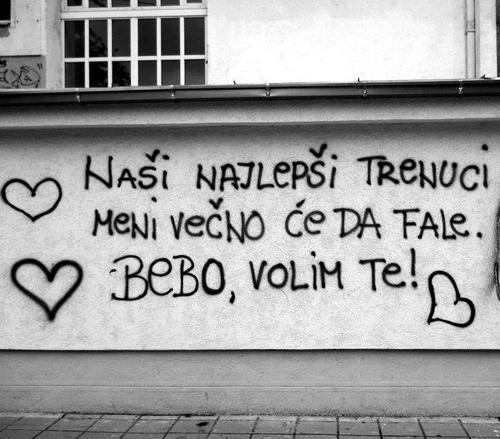 Naši najlepši trenuci
meni večno će da fale.
Bebo, volim te!